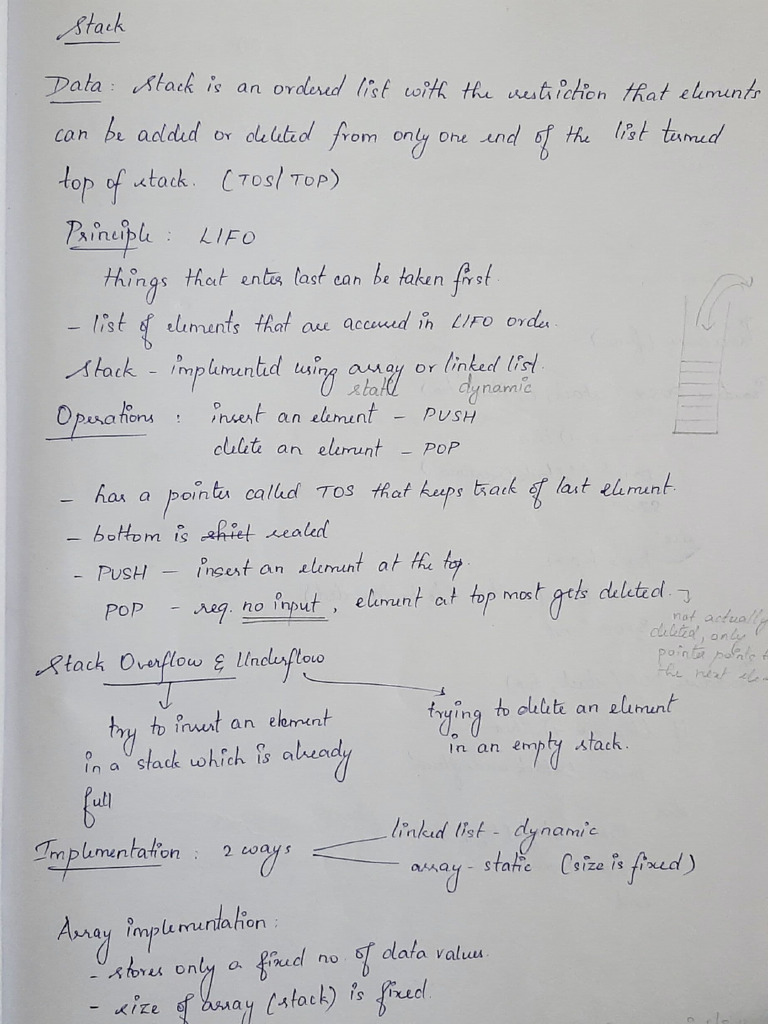 Stack
Data : Stack is an ordered list with the restriction that elements
can be added or deleted from only one end of the list termed
top of stack. (TOS/ TOP)
Principle : LIFO
things that enter last can be taken first.
- list of elements that are accessed in LIFO order.
Stack - implemented using array or linked list.
static dynamic
Operations : insert an element - PUSH
delete an element - POP
- has a pointer called TOS that keeps track of last element.
- bottom is sealed
- PUSH - insert an element at the top.
POP - req. no input, element at top most gets deleted.
not actually
deleted, only
pointer points
the next
Stack Overflow & Underflow
try to insert an element
in a stack which is already
full
trying to delete an element
in an empty stack.
Implementation : 2 ways
linked list - dynamic
array - static (size is fixed)
Array implementation :
- stores only a fixed no of data values.
- size of array (stack) is fixed.